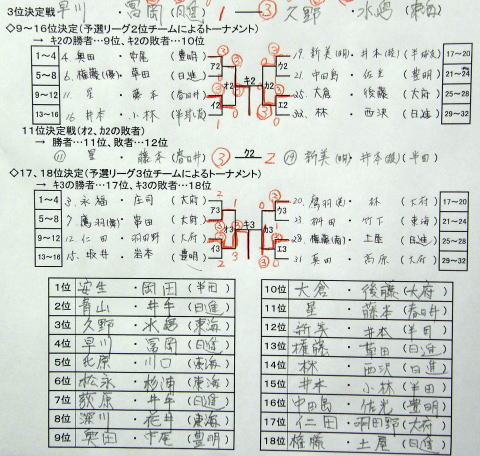 3位決定戦 早川・冨岡(日進) 1 ー ③ 久野・水嶋(東海)
◇9～16位決定(予選リーグ2位チームによるトーナメント)
→ キ2の勝者…9位、キ2の敗者…10位
1～4 4.奥田・中尾(豊明) 19.新美(明)・井本(稜)(半田) 17～20
5～8 6.権藤(優)・草田(日進) 21.中田島・佐光(豊明) 21～24
9～12 11.星・藤本(春日井) 25.大倉・後藤(大府) 25～28
13～16 16.井本・小林(半田) 32.林・西沢(日進) 29～32
ア2 イ2 オ2 キ2 カ2 ウ2 エ2
11位決定戦(オ2、カ2の敗者)
→ 勝者…11位、敗者…12位
⑪ 星・藤本(春日井) ③ ー ク2 ー 2 ⑲ 新美(明)・井本(稜)(半田)
◇17、18位決定(予選リーグ3位チームによるトーナメント)
→ キ3の勝者…17位、キ3の敗者…18位
1～4 3.永福・庄司(大府) 20.・林(大府) 17～20
5～8 7.・富田(大府) 23.・竹下(東海) 21～24
9～12 12.仁田・羽田野(大府) 28.権藤(菊)・土屋(日進) 25～28
13～16 15.坂井・岩本(豊明) 31.奥田・高原(大府) 29～32
ア3 イ3 オ3 キ3 カ3 ウ3 エ3
1位 安生・岡田(半田) 10位 大倉・後藤(大府)
2位 青山・井午(日進) 11位 星・藤本(春日井)
3位 久野・水嶋(東海) 12位 新美・井本(半田)
4位 早川・冨岡(日進) 13位 権藤・草田(日進)
5位 北原・川口(東海) 14位 林・西沢(日進)
6位 松永・杉浦(東海) 15位 井本・小林(半田)
7位 荻原・井午(日進) 16位 中田島・佐光(豊明)
8位 深川・花井(東海) 17位 仁田・羽田野(大府)
9位 奥田・中尾(豊明) 18位 権藤・土屋(日進)